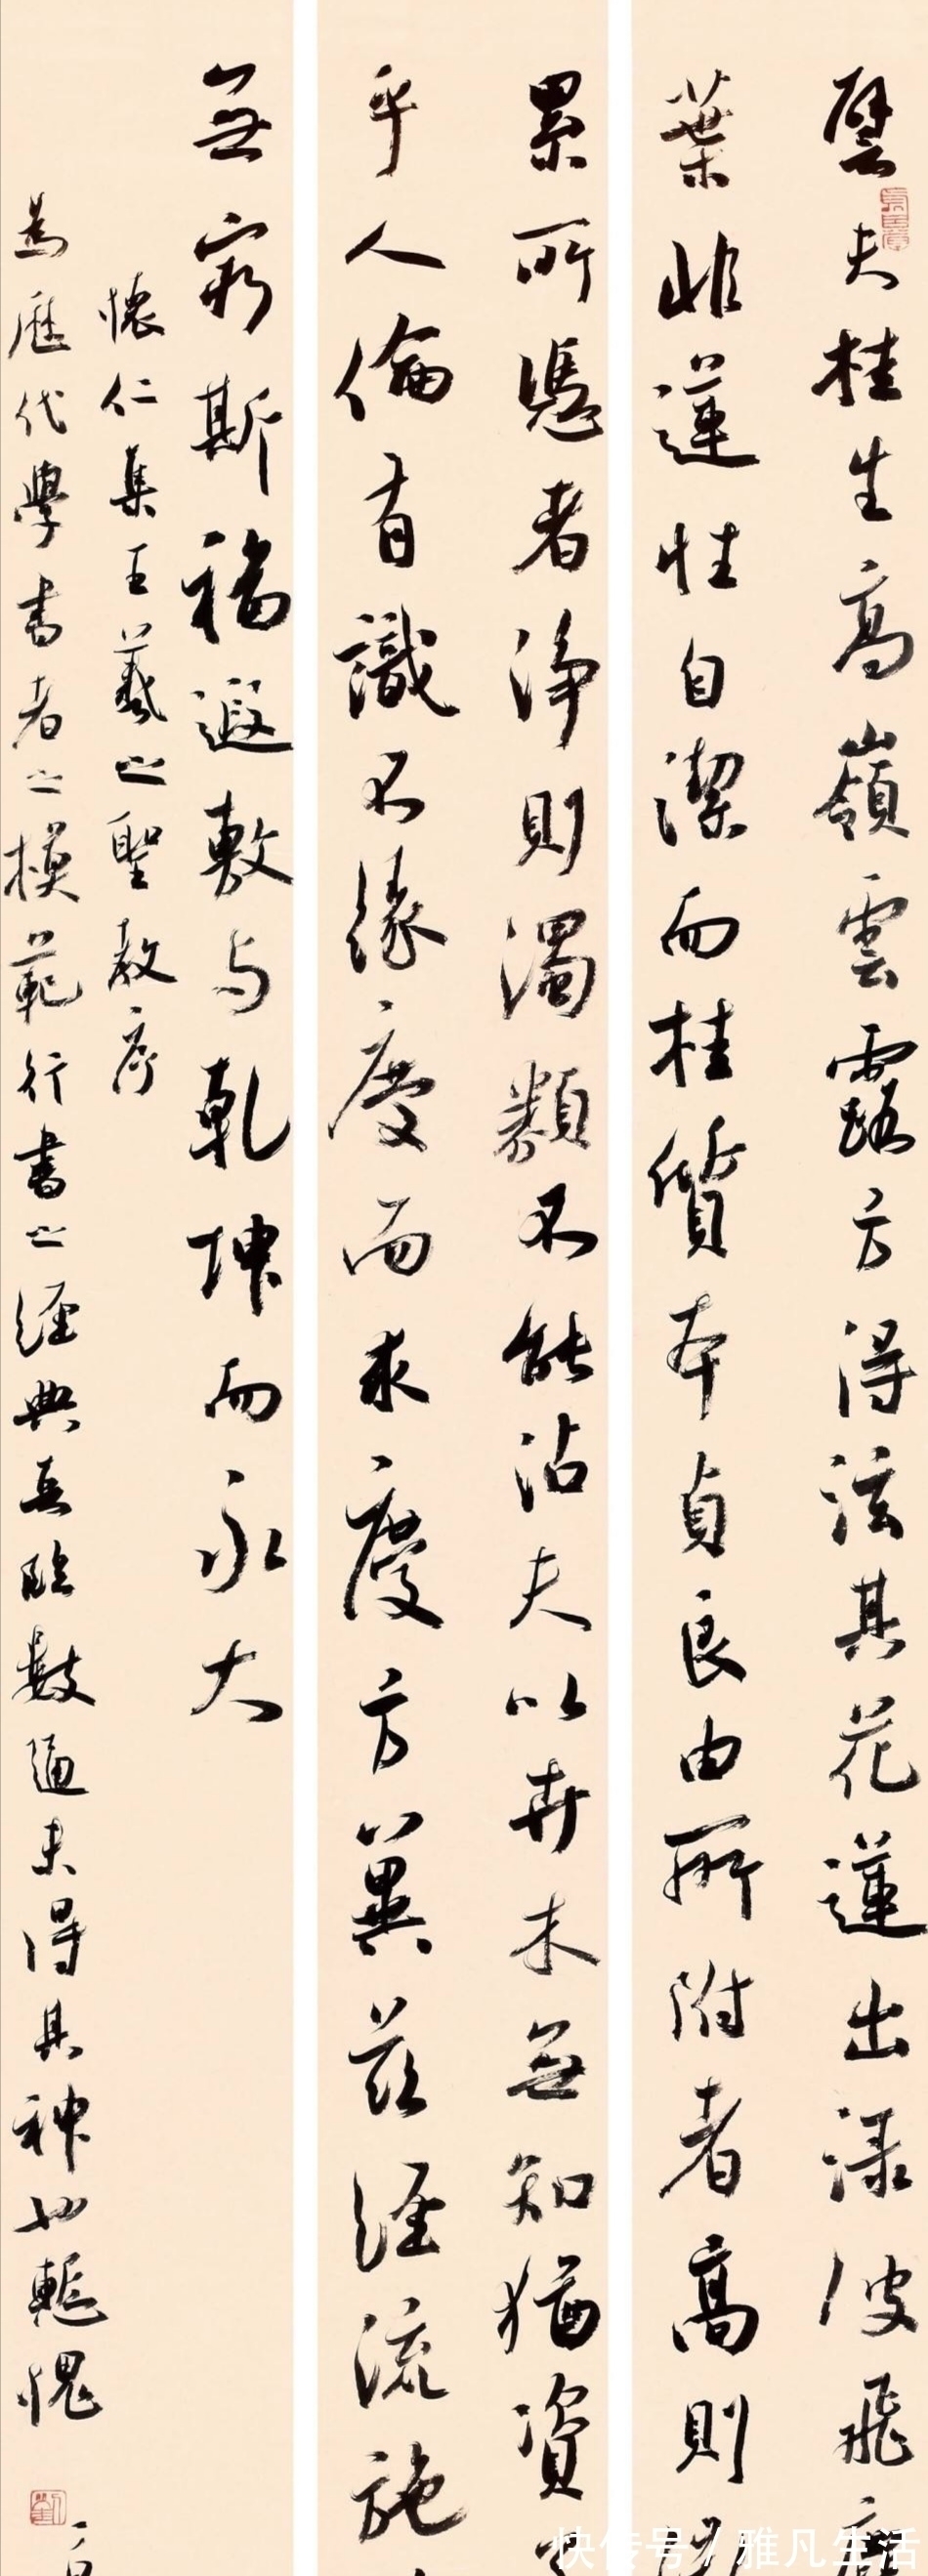 譬夫桂生高嶺雲露方得泫其花蓮出淥波飛塵
葉非蓮性自潔而桂質本貞良由所附者高則
累所憑者淨則濁類不能沾夫以卉木無知猶資
乎人倫有識不緣慶而求慶方冀茲經流施
無窮斯福遐敷与乾坤而永大
懷仁集王羲之聖教序
為歷代學書者之模範行書之經典吾臨數遍未得其神也輒愧
快传号/雅凡生活